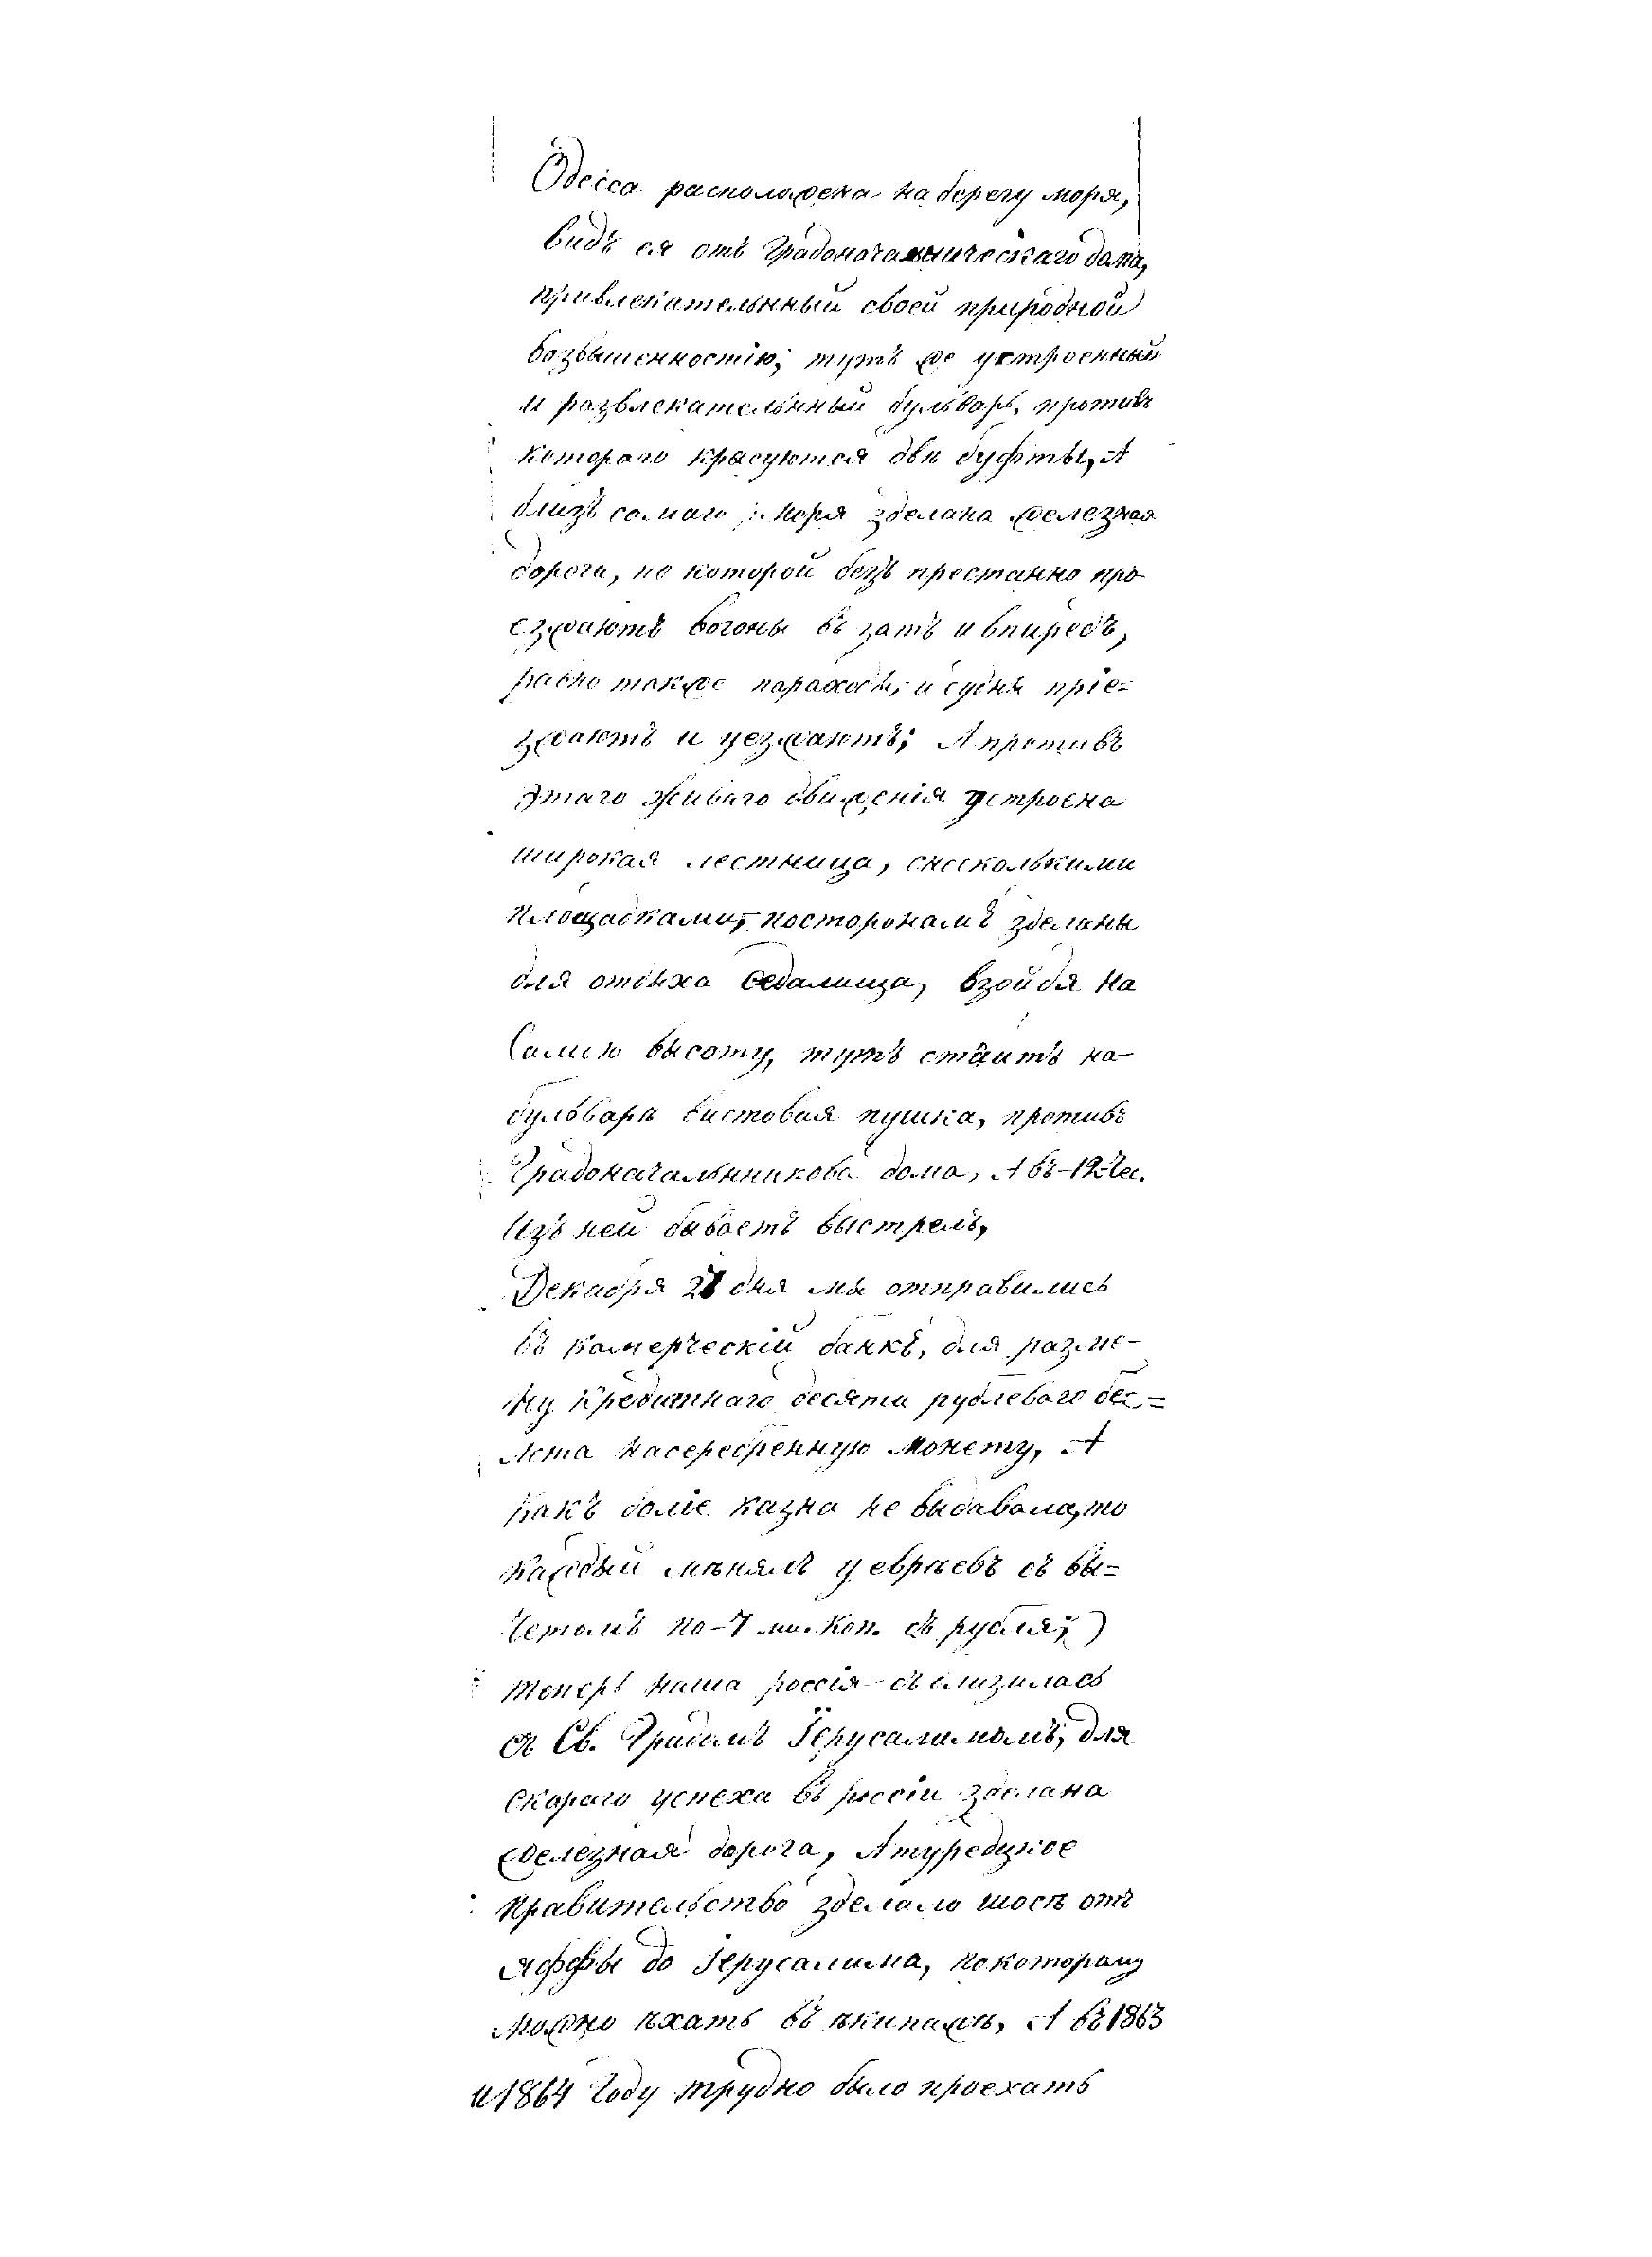 Одесса расположена на берегу моря,
видъ ея отъ Градоначальническаго дома,
привлекательнный своей природной
возвышенностію; тутъ же устроенный
и развлекательнный бульваръ, противъ
котораго красуются двѣ буфты, А
близъ самаго моря зделана железная
дорога, по которой безъ престанно про
езжаютъ вогоны въ затъ и впиредъ,
равно также параходы, и судны пріе=
зжаютъ и уезжаютъ; А противъ
этаго живаго движенія устроена
широкая лестница, снесколькими
площадками, посторонамъ зделаны
для отдыха седалища, взойдя на
Самою высоту, тутъ стаитъ на-
бульварѣ вистовая пушка, противъ
Градоначальнникова дома, А въ-12-час.
Изъ ней бываетъ выстрелъ,
Декабря 27 дня мы отправились
въ камерческій банкъ, для разме-
ну кредитнаго десяти рублеваго бе=
лета насеребренную монету, А
какъ боліе казна не выдавала, то
каждый мѣнялъ у еврѣевъ съ вы=
четомъ по-7 ми. коп. съ рубля;
теперь наша россія съблизилась
съ Св. Градомъ Іерусалимомъ, для
скораго успеха въ россіи зделана
железная дорога, А туредцкое
правительство зделало шосѣ отъ
Яффы до Іерусалима, покоторому
можно ѣхать въ ѣкипажѣ, А въ 1863
и 1864 году трудно было проехать